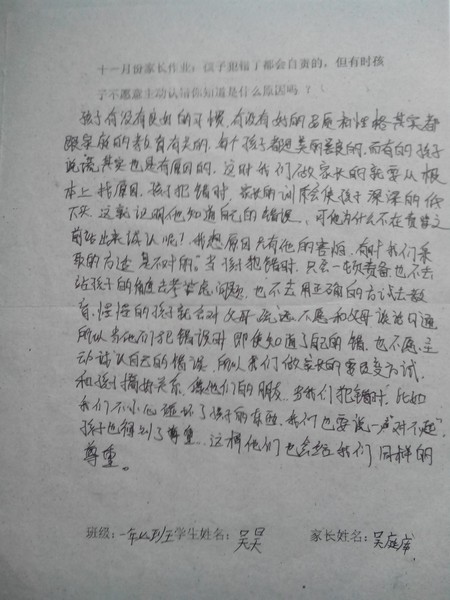 十一月份家长作业:孩子犯错了都会自责的,但有时孩
子不愿意主动认错你知道是什么原因吗?
孩子有没有良好的习惯,有没有好的品质和性格其实都
跟家庭的教育有关的,每个孩子都是美的善良的,而有的孩子
说谎其实也是有原因的,这时我们做家长的就要从根
本上找原因,孩子犯错时,家长的训斥会使孩子深深的低
下头,这就说明他知道自己的错误,可他为什么不在责备之
前站出来承认呢!我想原因只有他的害怕,有时我们采
取的方法是不对的"当孩子犯错时,只会一顿责备,也不去
站孩子的角度去考虑问题,也不去用正确的方式去教
育,慢慢的孩子就会对父母疏远,不愿和父母谈话沟通
所以当他们犯错误时,即使知道了自己的错,也不愿主
动承认自己的错误,所以我们做家长的要改变方式,
和孩子搞好关系,像他们的朋友,当我们犯错时,比如
我们不小心碰坏了孩子的东西,我们也要说一声"对不起",
孩子也得到了尊重,这样他们也会给我们同样的
尊重。
班级:一年 班 学生姓名:吴昊 家长姓名:吴庭